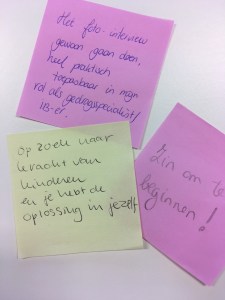 Het foto-interview
gewoon gaan doen,
heel praktisch
toepasbaar in mijn
rol als gedragsspecialist/
IB-er.
op zoek naar
kracht van
kinderen
en je hebt de
oplossing in jezelf
Zin om te
beginnen!